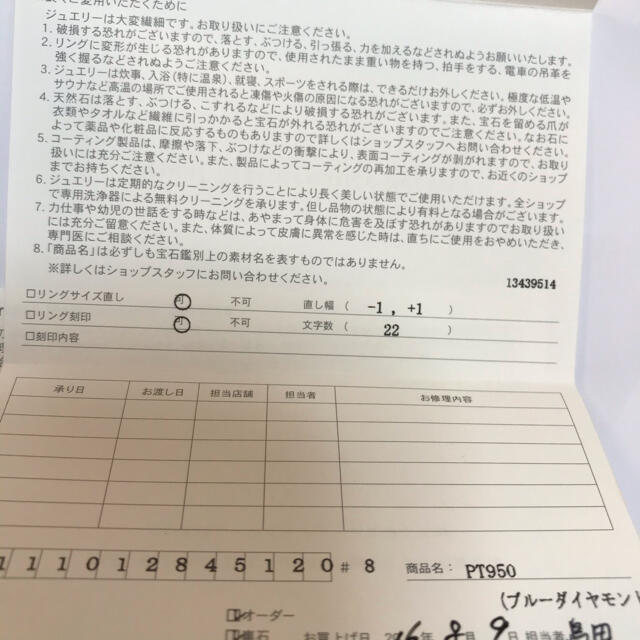 ご愛用いただくために
ジュエリーは大変繊細です。お取り扱いにご注意ください。
1. 破損する恐れがございますので、落とす、ぶつける、引っ張る、力を加えるなどされぬようお願いいたします。
2. リングに変形が生じる恐れがありますので、使用されたまま重い物を持つ、拍手をする、電車の吊革を
強く握るなどされぬようご注意ください。
3. ジュエリーは炊事、入浴(特に温泉)、就寝、スポーツをされる際は、できるだけお外しください。極度な低温や
サウナなど高温の場所でご使用されると凍傷や火傷の原因になる恐れがございますので、必ずお外しください。
4. 天然石は落とす、ぶつける、こすれるなどにより破損する恐れがございます。また、宝石を留める爪が
衣類やタオルなど繊維に引っかかると宝石が外れる恐れがございますのでご注意ください。なお石に
よって薬品や化粧品に反応するものもありますので詳しくはショップスタッフへお問い合わせください。
5. コーティング製品は、摩擦や落下、ぶつけなどの衝撃により、表面コーティングが剥がれますので、お取り
扱いには充分ご注意ください。また、製品によってコーティングの再加工を承りますので、お近くのショップ
までお持ちください。
6. ジュエリーは定期的なクリーニングを行うことにより長く美しい状態でご使用いただけます。全ショップ
で専用洗浄器による無料クリーニングを承ります。但し品物の状態により有料となる場合がございます。
7. 力仕事や幼児の世話をする時などは、あやまって身体に危害を及ぼす恐れがありますのでお取り扱い
には充分ご留意ください。また、体質によって皮膚に異常を感じた時は、直ちにご使用をおやめいただき、
専門医にご相談ください。
8.「商品名」は必ずしも宝石鑑別上の素材名を表すものではありません。
※詳しくはショップスタッフにお問い合わせください。
13439514
□リングサイズ直し 可 不可 直し幅 ( -1 , +1 )
□リング刻印 可 不可 文字数 ( 22 )
□刻印内容
承り日 お渡し日 担当店舗 担当者 お修理内容
111012845120 # 8 商品名: PT950
(ブルーダイヤモンド
オーダー
お買上げ日 2016年 8月 9日 担当者 島田